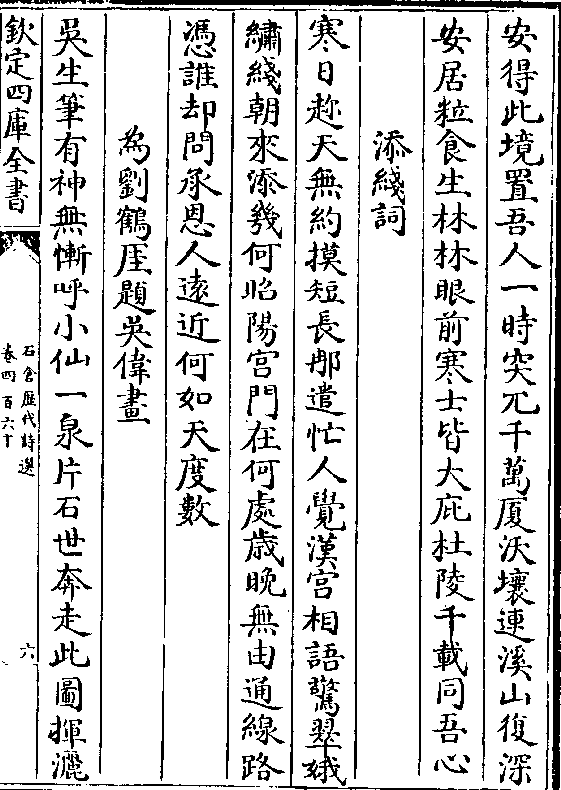 安得此境置吾人一時突兀千萬厦沃壤連溪山復深
安居粒食生林林眼前寒士皆大庇杜陵千載同吾心
添綫詞
寒日趂天無約摸短長那遣忙人覺漢宫相語驚翠娥
繡綫朝來添幾何昭陽宫門在何處歳晚無由通線路
憑誰却問承恩人遠近何如天度數
為劉鶴厓題吳偉畫
吳生筆有神無慚呼小仙一泉片石世奔走此圖揮灑
欽定四庫全書
石倉歴代詩選
卷四百六十
六